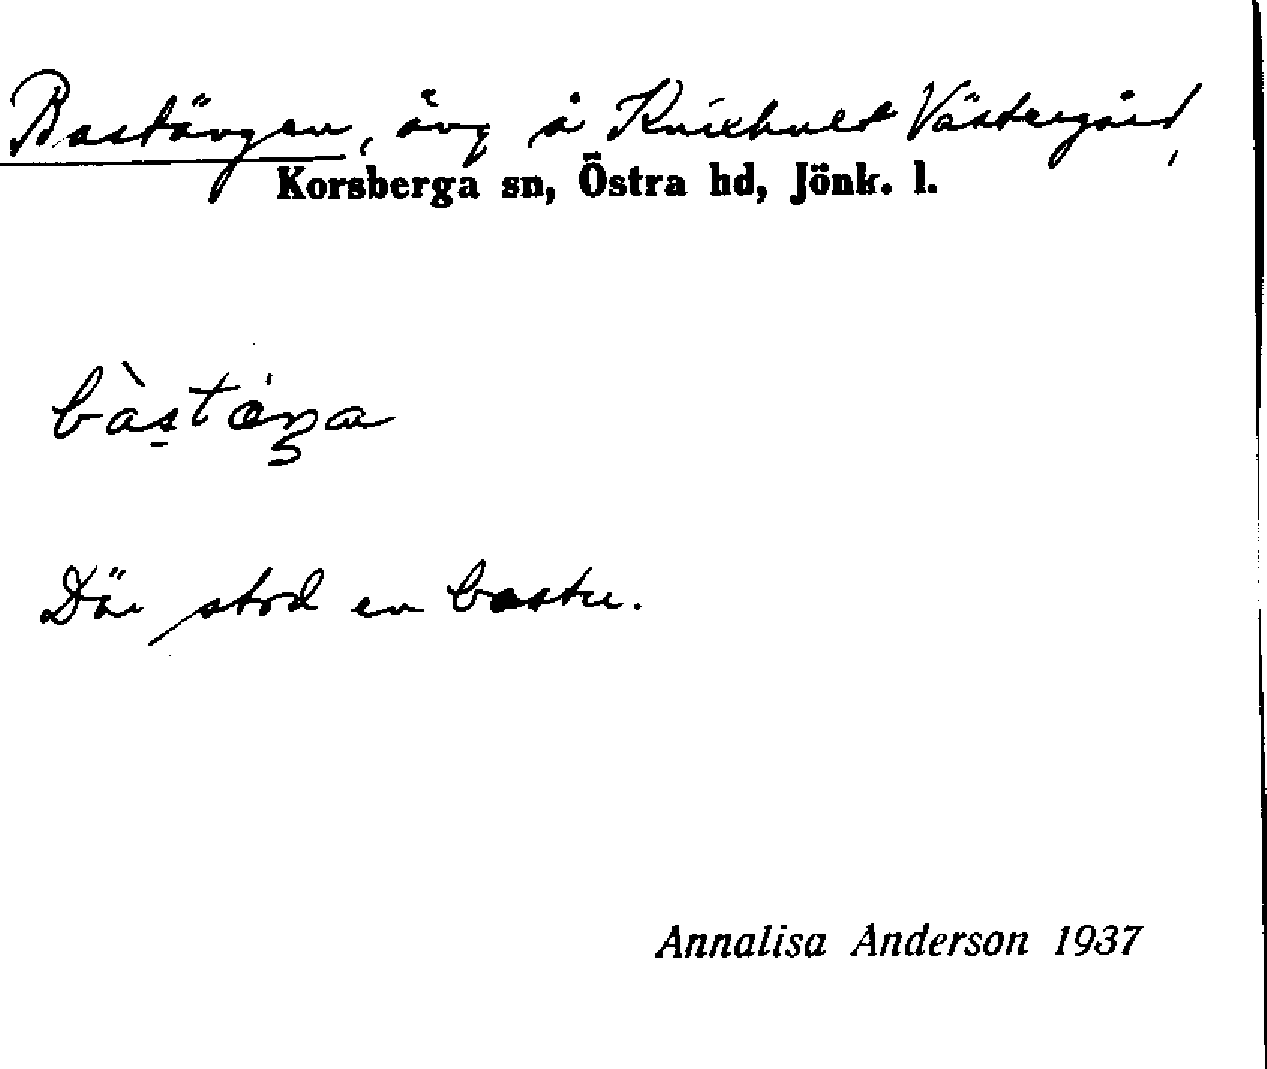 Bastängen, äng å Knixhult Västergård,
Korsberga sn, Östra hd, Jönk. l.
Där stod en bastu.
Annalisa Anderson 1937